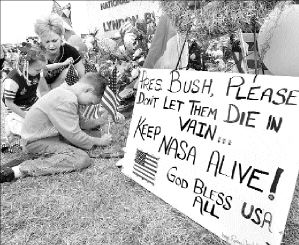 NATIONAL
LYNDON B
PRES. BUSH, PLEASE
DON'T LET THEM DIE IN
VAIN...
KEEP NASA ALIVE!
GOD BLESS USA
ALL